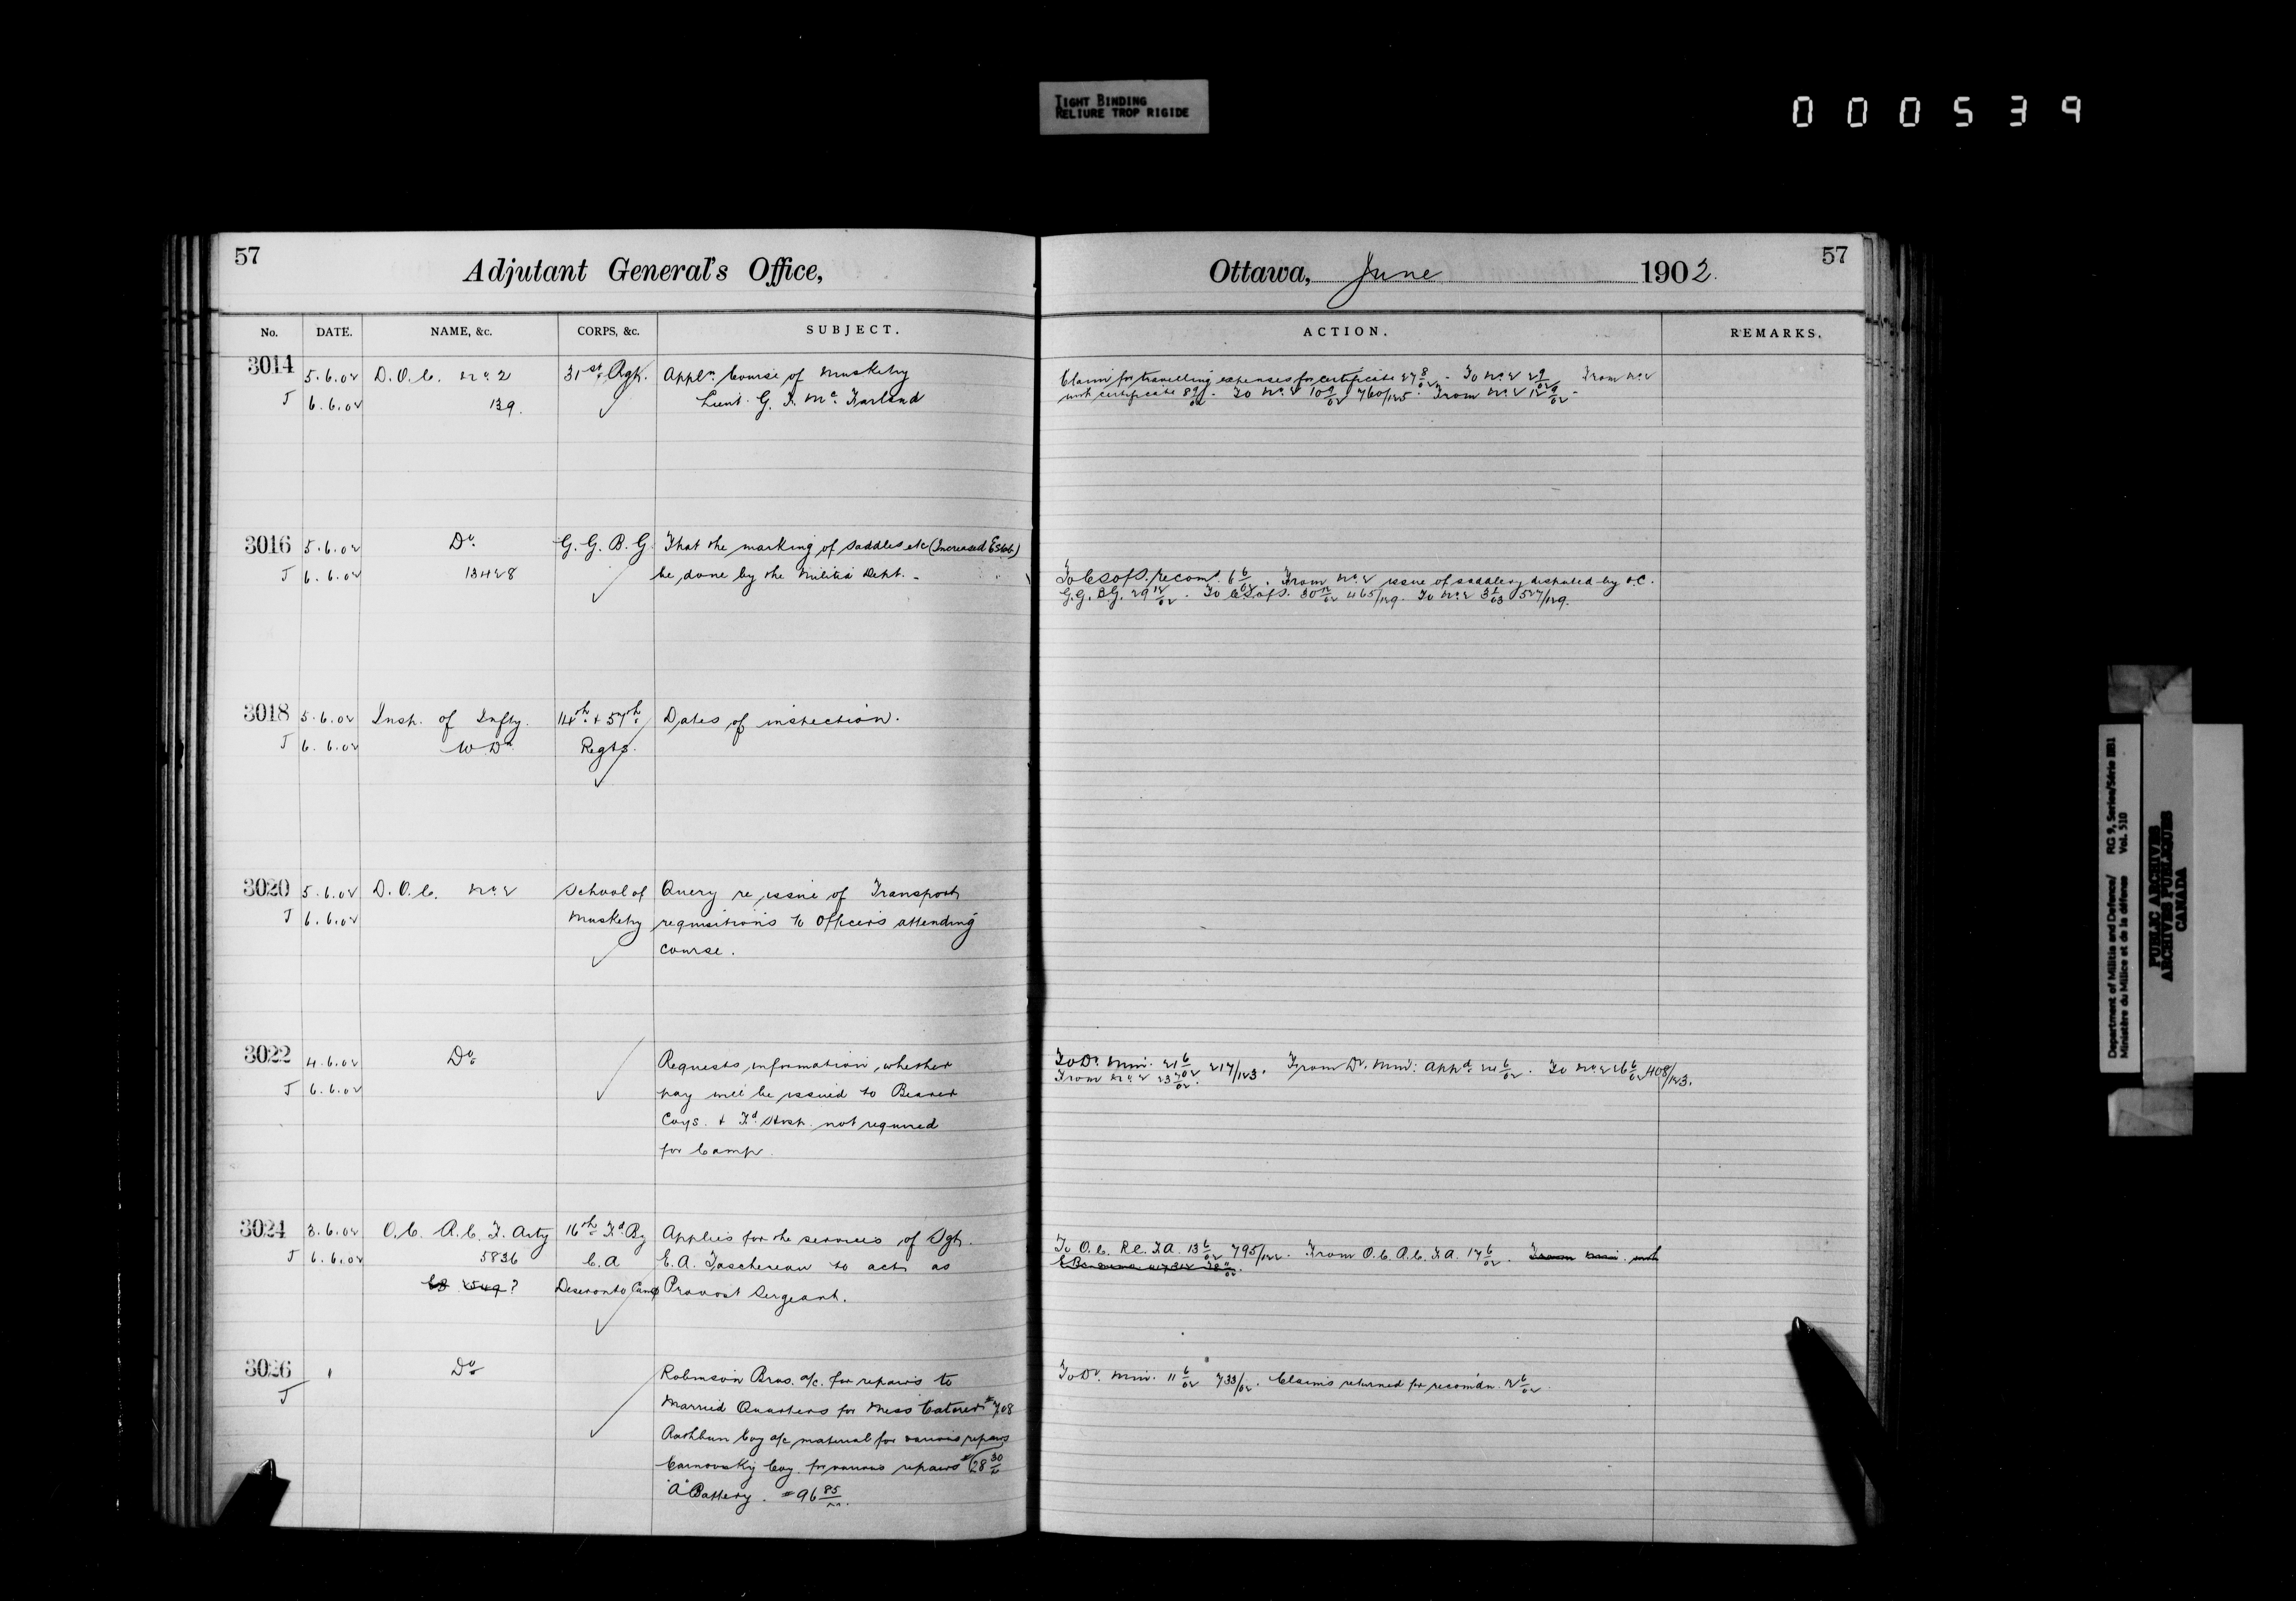 TIGHT BINDING
RELIURE TROP RIGIDE
000539
57
Adjutant General's Office,
No. DATE. NAME, &c. CORPS, &c. SUBJECT.
3014 5.6.02 D.O.C. No. 2 31st Rgt. Appln. Course of Musketry
J 6.6.02 139. Lieut. G. F. McFarland
3016 5.6.02 Do. G.G.B.G. That the marking of saddles etc (Increased Estab.)
J 6.6.02 13428 be done by the Militia Dept.
3018 5.6.02 Insp. of Infty. 14th & 57th Dates of inspection.
J 6.6.02 W.Dn. Regts.
3020 5.6.02 D.O.C. No. 2 School of Query re issue of Transport
J 6.6.02 Musketry requisitions to Officers attending
course.
3022 4.6.02 Do. Requests information, whether
J 6.6.02 pay will be issued to Bearer
Coys. & Fd. Hosp. not required
for Camp.
3024 3.6.02 O.C. R.C.F. Arty 16th Fd. By Applies for the services of Sgt.
J 6.6.02 5836 C.A E.A. Taschereau to act as
Deseronto Camp Provost Sergeant.
3026 Do. Robinson Bros. a/c. for repairs to
J Married Quarters for Mess Caterer $7.08
Rathbun Coy a/c material for various repairs
Carnovsky Coy. for various repairs $128 30
"A" Battery. $96 85
57
Ottawa, June 1902.
ACTION. REMARKS.
Claim for travelling expenses for certificate 27 8/02. To No. 2 2 9/02 From No. 2
with certificate 8 9/02. To No. 2 10 9/02 760/125. From No. 2 12 9/02.
To C.S of S. recomd. 6 6/02. From No. 2 issue of saddlery disputed by O.C.
G.G.B.G. 29 12/02. To C.S of S. 30 12/02 465/129. To No. 2 3 1/03 527/129.
To D. Min. 21 6/02 217/123. From D. Min. Appd. 24 6/02. To No. 2 26 6/02 408/123.
From No. 2 23 7/02.
To O.C. R.C.F.A. 13 6/02 795/122. From O.C. R.C.F.A. 17 6/02. with
To D. Min. 11 6/02 733/02. Claims returned for recomdn. 12 6/02.
Department of Militia and Defence/ RG 9, Series/Série IIB1
Ministère du Milice et de la défense Vol. 510
PUBLIC ARCHIVES
ARCHIVES PUBLIQUES
CANADA